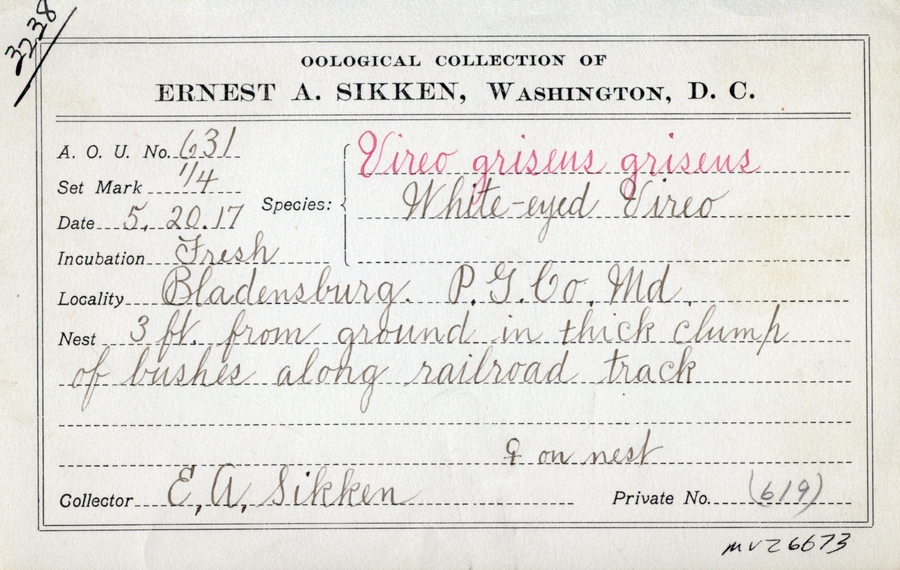 3238
OOLOGICAL COLLECTION OF
ERNEST A. SIKKEN, WASHINGTON, D. C.
A. O. U. No. 631
Set Mark 1/4
Date 5. 20. 17
Species: Vireo griseus griseus
White-eyed Vireo
Incubation Fresh
Locality Bladensburg. P. G. Co. Md.
Nest 3 ft. from ground in thick clump
of bushes along railroad track
♀ on nest
Collector E. A. Sikken
Private No. (619)
MVZ 6673